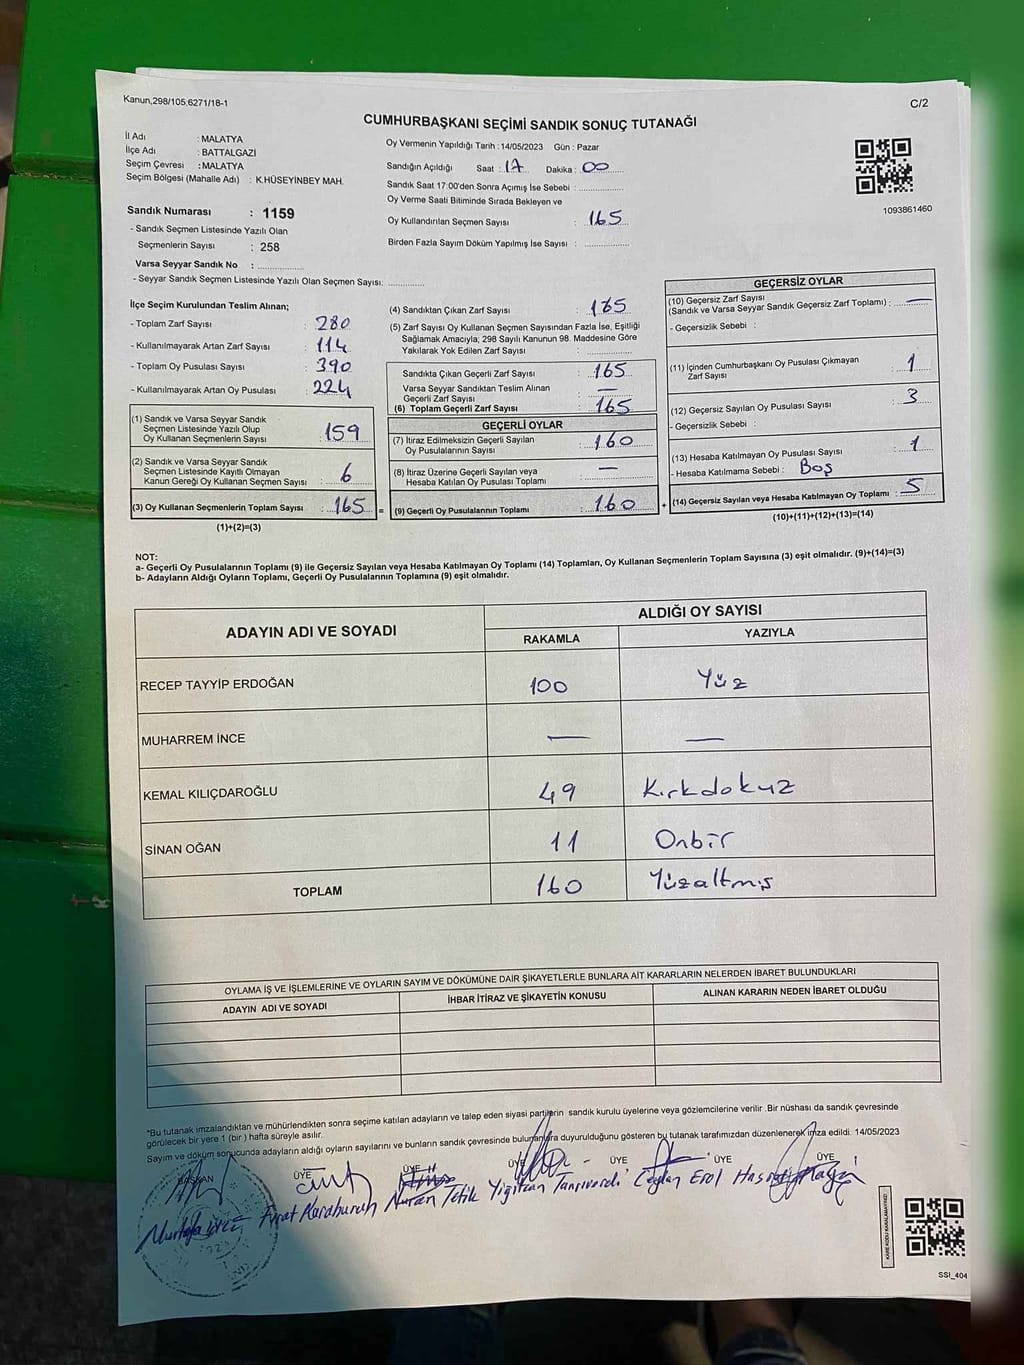 Kanun,298/105,6271/18-1
C/2
CUMHURBAŞKANI SEÇİMİ SANDIK SONUÇ TUTANAĞI
İl Adı : MALATYA
İlçe Adı : BATTALGAZİ
Seçim Çevresi : MALATYA
Seçim Bölgesi (Mahalle Adı) : K.HÜSEYİNBEY MAH.
Sandık Numarası : 1159
- Sandık Seçmen Listesinde Yazılı Olan
Seçmenlerin Sayısı : 258
Varsa Seyyar Sandık No : ..................
- Seyyar Sandık Seçmen Listesinde Yazılı Olan Seçmen Sayısı: ..............
Oy Vermenin Yapıldığı Tarih : 14/05/2023 Gün : Pazar
Sandığın Açıldığı Saat : 17 Dakika : 00
Sandık Saat 17:00'den Sonra Açımış İse Sebebi : ................
Oy Verme Saati Bitiminde Sırada Bekleyen ve
Oy Kullandırılan Seçmen Sayısı : 165
Birden Fazla Sayım Döküm Yapılmış İse Sayısı : ................
1093861460
İlçe Seçim Kurulundan Teslim Alınan;
- Toplam Zarf Sayısı : 280
- Kullanılmayarak Artan Zarf Sayısı : 114
- Toplam Oy Pusulası Sayısı : 390
- Kullanılmayarak Artan Oy Pusulası : 224
(1) Sandık ve Varsa Seyyar Sandık
Seçmen Listesinde Yazılı Olup
Oy Kullanan Seçmenlerin Sayısı : 159
(2) Sandık ve Varsa Seyyar Sandık
Seçmen Listesinde Kayıtlı Olmayan
Kanun Gereği Oy Kullanan Seçmen Sayısı : 6
(3) Oy Kullanan Seçmenlerin Toplam Sayısı : 165 =
(1)+(2)=(3)
(4) Sandıktan Çıkan Zarf Sayısı : 165
(5) Zarf Sayısı Oy Kullanan Seçmen Sayısından Fazla İse, Eşitliği
Sağlamak Amacıyla; 298 Sayılı Kanunun 98. Maddesine Göre
Yakılarak Yok Edilen Zarf Sayısı : ................
Sandıkta Çıkan Geçerli Zarf Sayısı : 165
Varsa Seyyar Sandıktan Teslim Alınan
Geçerli Zarf Sayısı : —
(6) Toplam Geçerli Zarf Sayısı : 165
GEÇERLİ OYLAR
(7) İtiraz Edilmeksizin Geçerli Sayılan
Oy Pusulalarının Sayısı : 160
(8) İtiraz Üzerine Geçerli Sayılan veya
Hesaba Katılan Oy Pusulası Toplamı : —
(9) Geçerli Oy Pusulalarının Toplamı : 160 +
GEÇERSİZ OYLAR
(10) Geçersiz Zarf Sayısı
(Sandık ve Varsa Seyyar Sandık Geçersiz Zarf Toplamı) : —
- Geçersizlik Sebebi :
(11) İçinden Cumhurbaşkanı Oy Pusulası Çıkmayan
Zarf Sayısı : 1
(12) Geçersiz Sayılan Oy Pusulası Sayısı : 3
- Geçersizlik Sebebi :
(13) Hesaba Katılmayan Oy Pusulası Sayısı : 1
- Hesaba Katılmama Sebebi : Boş
(14) Geçersiz Sayılan veya Hesaba Katılmayan Oy Toplamı : 5
(10)+(11)+(12)+(13)=(14)
NOT:
a- Geçerli Oy Pusulalarının Toplamı (9) ile Geçersiz Sayılan veya Hesaba Katılmayan Oy Toplamı (14) Toplamları, Oy Kullanan Seçmenlerin Toplam Sayısına (3) eşit olmalıdır. (9)+(14)=(3)
b- Adayların Aldığı Oyların Toplamı, Geçerli Oy Pusulalarının Toplamına (9) eşit olmalıdır.
ADAYIN ADI VE SOYADI
ALDIĞI OY SAYISI
RAKAMLA YAZIYLA
RECEP TAYYİP ERDOĞAN 100 Yüz
MUHARREM İNCE — —
KEMAL KILIÇDAROĞLU 49 Kırkdokuz
SİNAN OĞAN 11 Onbir
TOPLAM 160 Yüzaltmış
OYLAMA İŞ VE İŞLEMLERİNE VE OYLARIN SAYIM VE DÖKÜMÜNE DAİR ŞİKAYETLERLE BUNLARA AİT KARARLARIN NELERDEN İBARET BULUNDUKLARI
ADAYIN ADI VE SOYADI İHBAR İTİRAZ VE ŞİKAYETİN KONUSU ALINAN KARARIN NEDEN İBARET OLDUĞU
*Bu tutanak imzalandıktan ve mühürlendikten sonra seçime katılan adayların ve talep eden siyasi partilerin sandık kurulu üyelerine veya gözlemcilerine verilir .Bir nüshası da sandık çevresinde
görülecek bir yere 1 (bir ) hafta süreyle asılır.
Sayım ve döküm sonucunda adayların aldığı oyların sayılarını ve bunların sandık çevresinde bulunanlara duyurulduğunu gösteren bu tutanak tarafımızdan düzenlenerek imza edildi. 14/05/2023
BAŞKAN ÜYE ÜYE ÜYE ÜYE ÜYE ÜYE
Mustafa Fırat Karaburun Nuran Tetik Yiğitcan Tanrıverdi Ceylan Erol
KARE KODU KARALAMAYINIZ!
SSI_404